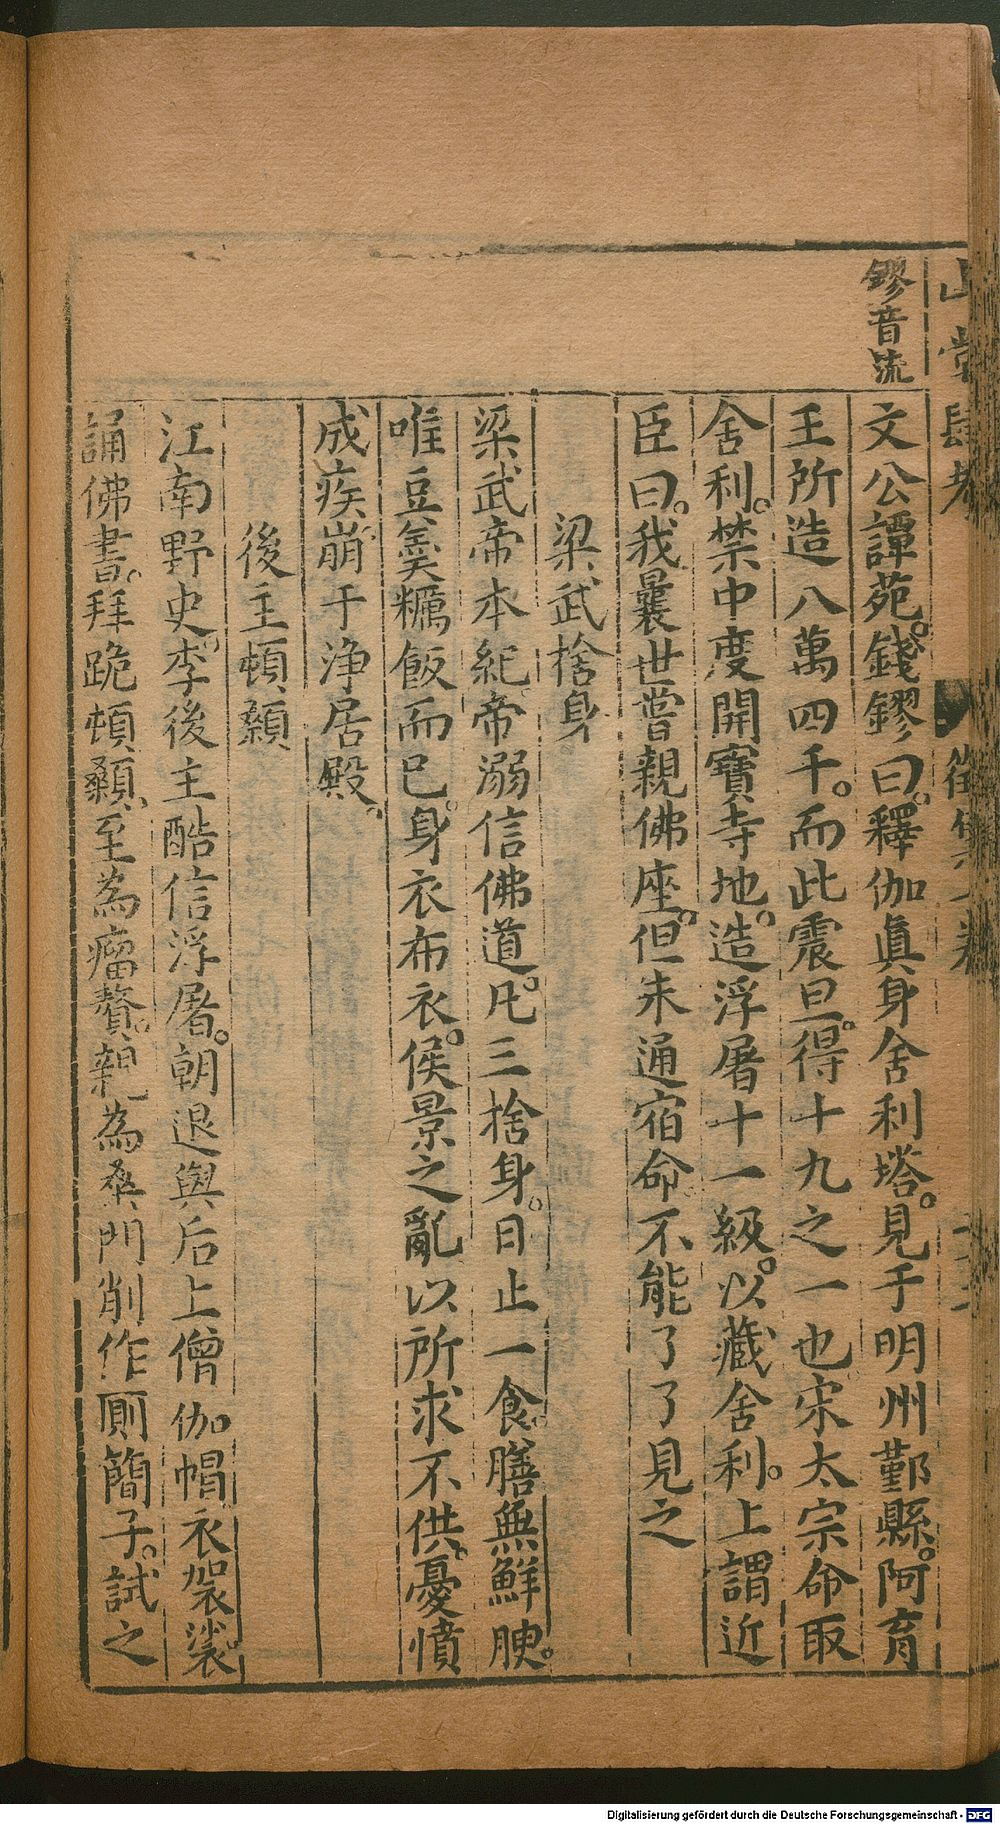 山堂肆考
鏐音流
文公譚苑錢鏐曰釋伽眞身舍利塔見于明州鄞縣阿育
王所造八萬四千而此震旦得十九之一也宋太宗命取
舍利禁中度開寶寺地造浮屠十一級以藏舍利上謂近
臣曰我曩世嘗親佛座但未通宿命不能了了見之
梁武捨身
梁武帝本紀帝溺信佛道凡三捨身日止一食膳無鮮腴
唯豆羹糲飯而已身衣布衣侯景之亂以所求不供憂憤
成疾崩于浄居殿
後主頓顙
江南野史李後主酷信浮屠朝退與后上僧伽帽衣袈裟
誦佛書拜跪頓顙至為瘤贅親為桑門削作厠簡子試之
Digitalisierung gefördert durch die Deutsche Forschungsgemeinschaft - DFG